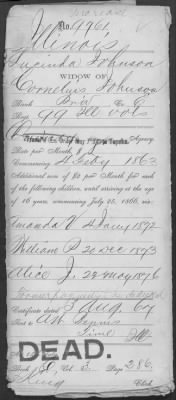 Increase
No. 9961
Illinois
Lucinda Johnson
WIDOW OF
Cornelius Johnson
Rank Pri Co. G
Reg. 99 Ill Vols
Agency
Rate per Month, $8
Commencing 4 Feby 1863
Additional sum of $2 per month for each
of the following children, until arriving at the age
of 16 years, commencing July 25, 1866, viz:
Amanda V 4 Jany 1872
William P 20 Dec 1873
Alice J. 22 May 1876
Certificate dated 5 Aug. 67
Sent to A. W.
Time Ill
DEAD.
Book Vol. 3 Page 286.
Clerk.